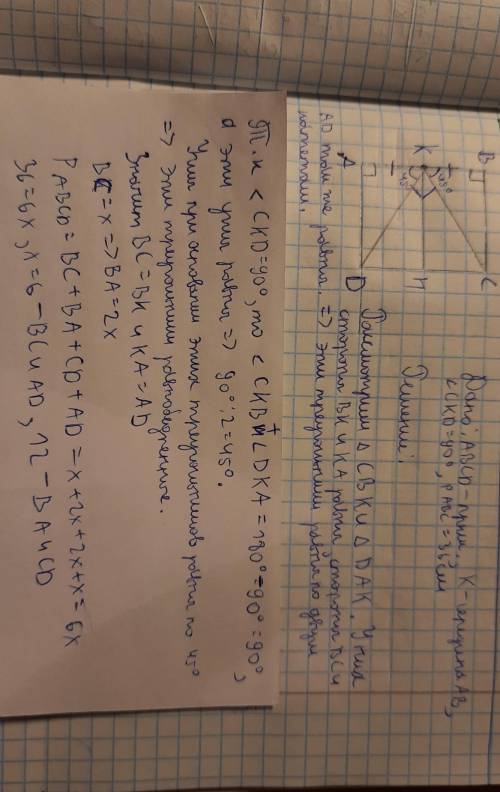 B
C
K
45°
45°
H
A
D
Дано: ABCD-прям., K-середина AB,
<CKD=90°, P ABC=36см
Решение:
Рассмотрим △ CBK и △ DAK. У них
стороны BK и KA равны, стороны BC и
AD тоже равны. => эти треугольники равны по двум
катетам.
Т.к < CKD=90°, то < CKB и + < DKA = 180°-90°=90°,
а эти углы равны => 90°:2=45°.
Углы при основании этих треугольников равны по 45°
=> эти треугольники равнобедренные.
Значит BC=BK и KA=AD
BC=x => BA=2x
PABCD=BC+BA+CD+AD=x+2x+2x+x=6x
36=6x, x=6-BC и AD, 12-BA и CD